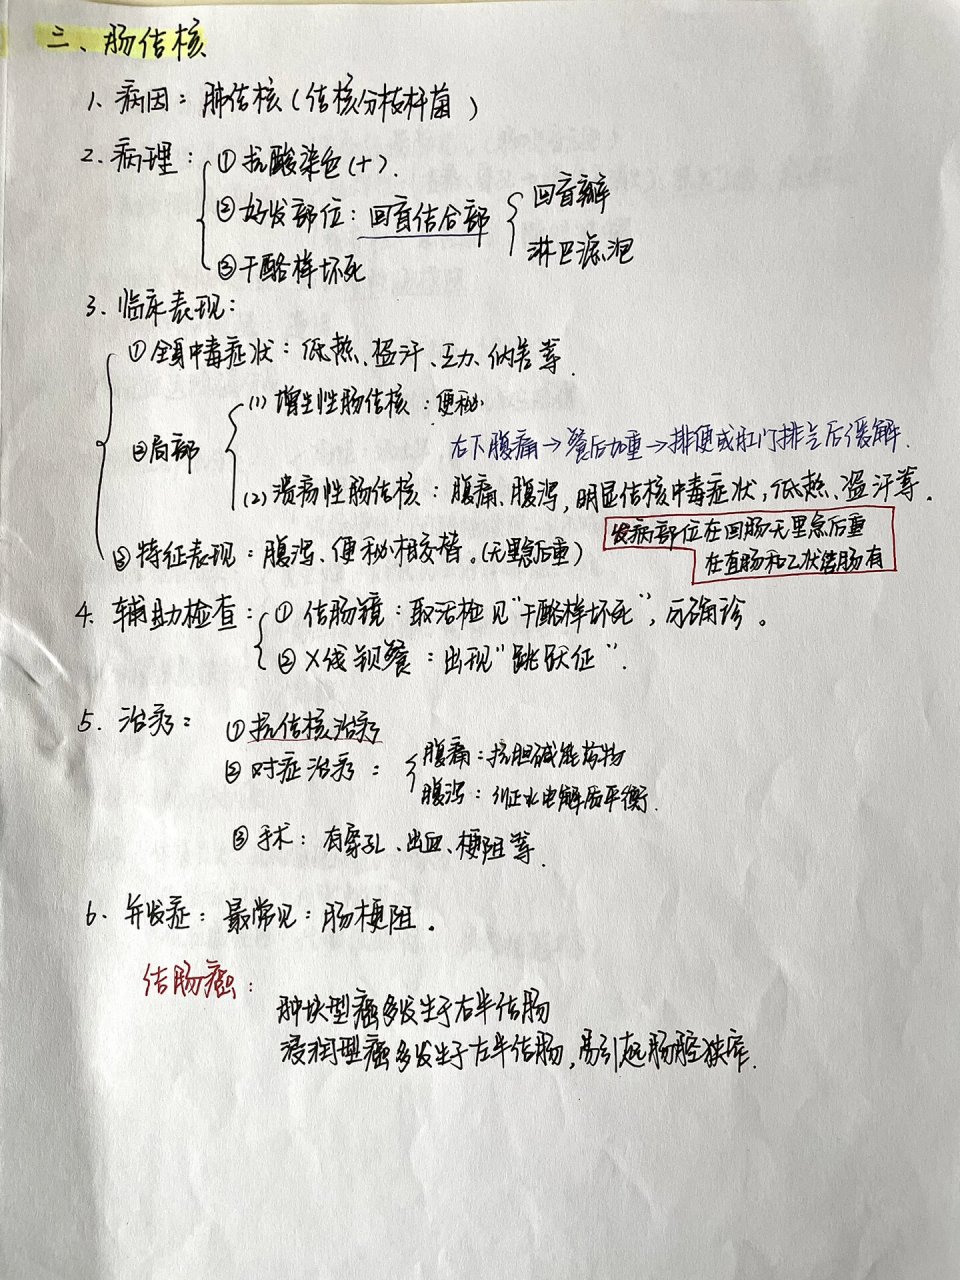 三、肠结核
1、病因：肺结核（结核分枝杆菌）
2、病理：①抗酸染色(+).
②好发部位：回盲结合部 回盲瓣
淋巴滤泡
③干酪样坏死
3、临床表现：
①全身中毒症状：低热、盗汗、乏力、纳差等.
②局部 (1)增生性肠结核：便秘
右下腹痛→餐后加重→排便或肛门排气后缓解.
(2)溃疡性肠结核：腹痛、腹泻,明显结核中毒症状,低热、盗汗等.
③特征表现：腹泻、便秘相交替。(无里急后重)
发病部位在回肠无里急后重
在直肠和乙状结肠有
4、辅助检查：①结肠镜：取活检见“干酪样坏死”，可确诊。
②X线钡餐：出现“跳跃征”.
5、治疗：①抗结核治疗
②对症治疗：腹痛：抗胆碱能药物
腹泻：纠正水电解质平衡.
③手术：有穿孔、出血、梗阻等.
6、并发症：最常见：肠梗阻。
结肠癌：
肿块型癌多发生于右半结肠
浸润型癌多发生于左半结肠,易引起肠腔狭窄.